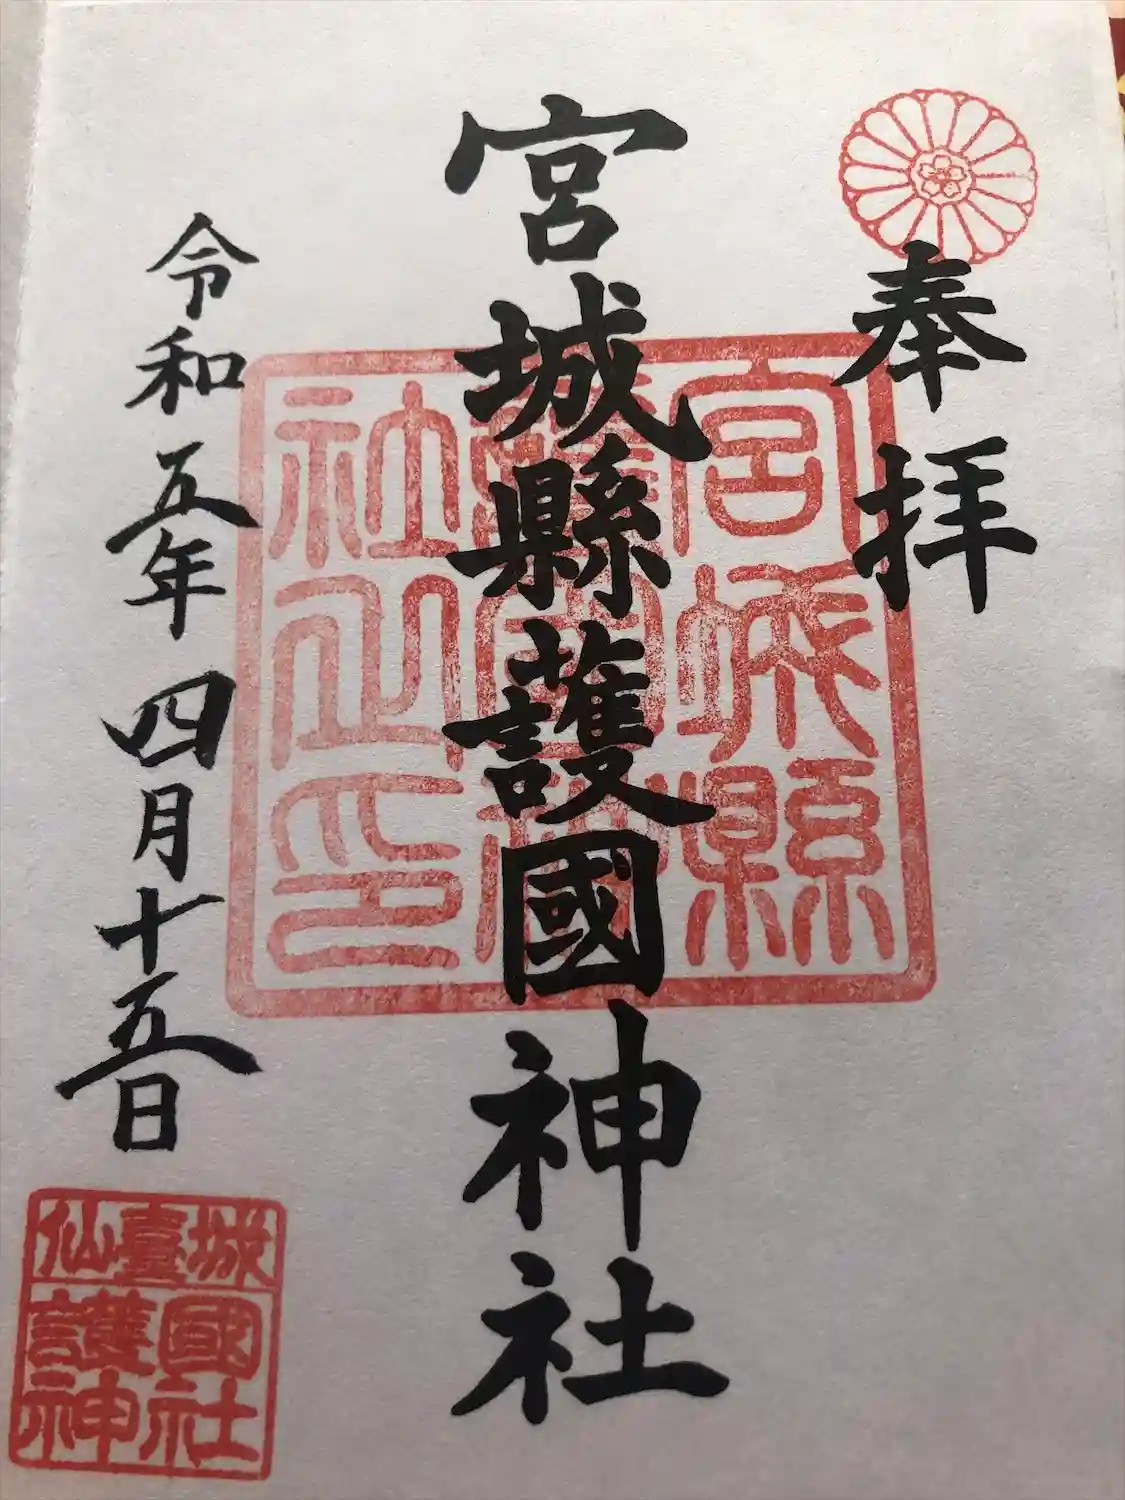 奉拝
宮城縣護國神社
宮城縣
護國神
社之印
令和五年四月十五日
仙臺城
護國
神社